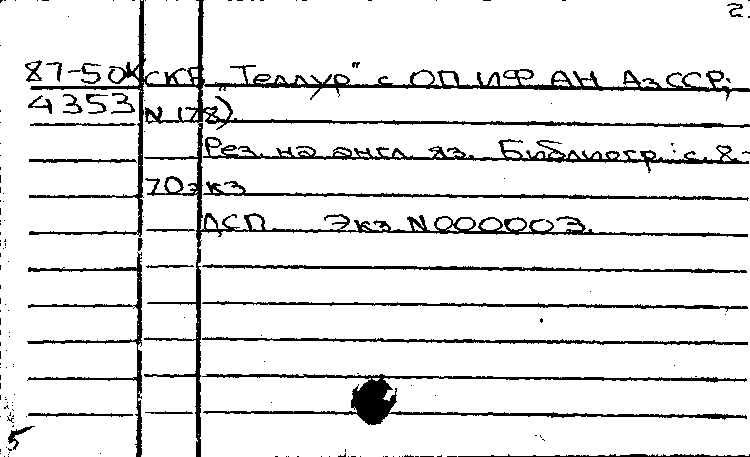 2.
87-50к СКБ „Теллур" с ОП ИФ АН АзССР;
4353 N 178)
Рез. на англ. яз. Библиогр.: с. 8-
70 экз
ДСП Экз N000003.
5